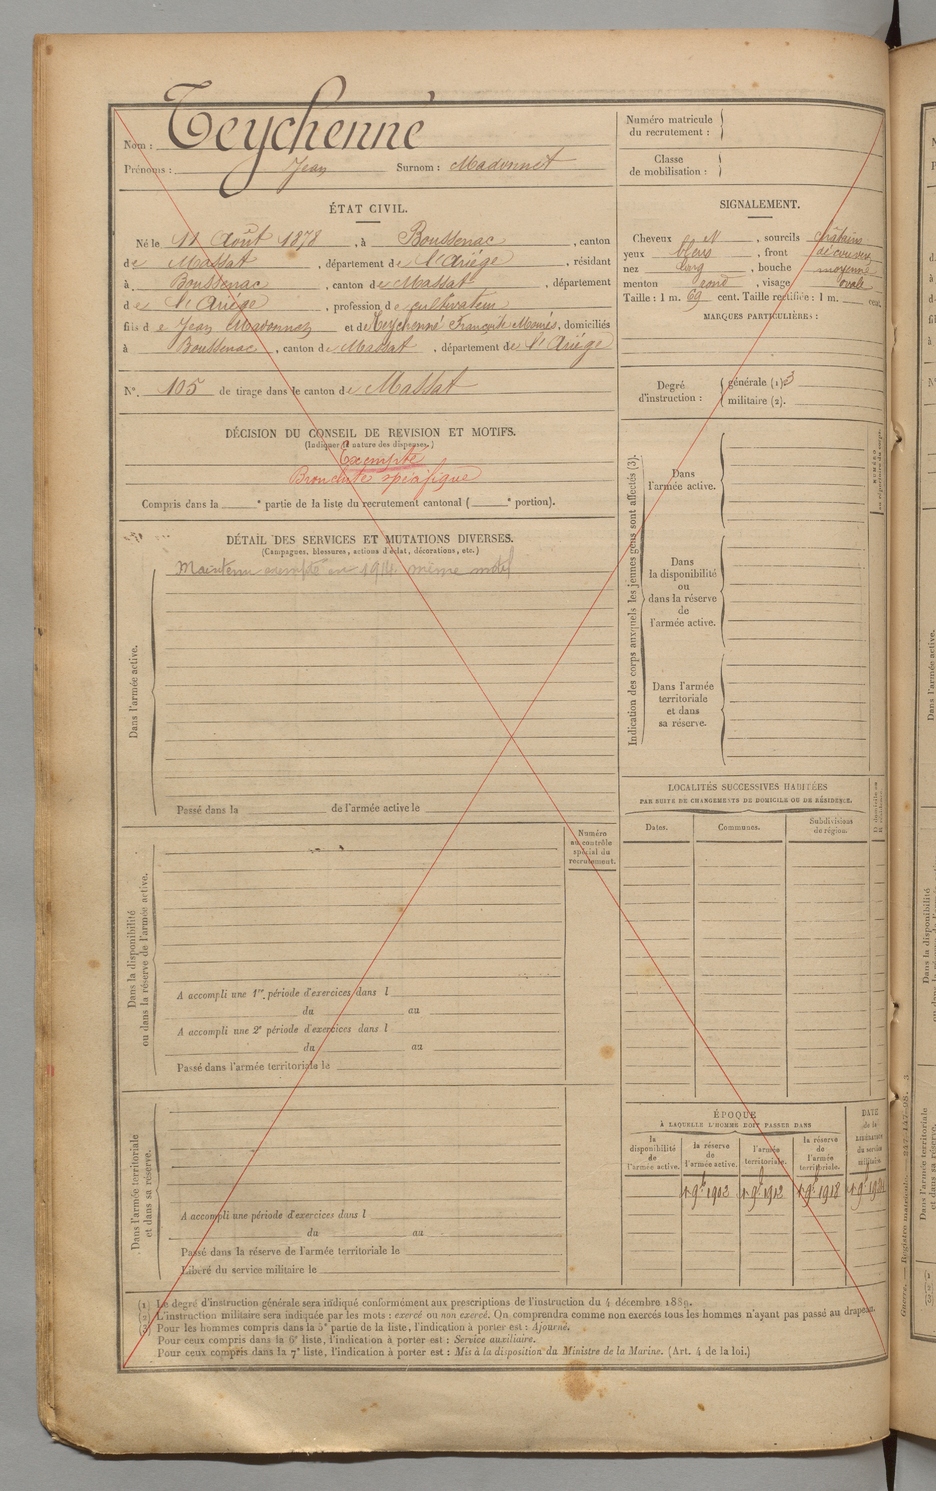 Nom : Teychenné
Prénoms : Jean Surnom : Madonnet
ÉTAT CIVIL.
Né le 11 Août 1878, à Boussenac, canton
de Massat, département de l'Ariége, résidant
à Boussenac, canton de Massat, département
de l'Ariége, profession de cultivateur
fils de Jean Madonnet et de Teychenné Françoise, domiciliés
à Boussenac, canton de Massat, département de l'Ariége
N° 105 de tirage dans le canton de Massat
DÉCISION DU CONSEIL DE REVISION ET MOTIFS.
(Indiquer la nature des dispenses.)
Exempté
Bronchite spécifique
Compris dans la e partie de la liste du recrutement cantonal ( e portion).
DÉTAIL DES SERVICES ET MUTATIONS DIVERSES.
(Campagnes, blessures, actions d'éclat, décorations, etc.)
Maintenu exempté en 1914 même motif
Dans l'armée active.
Passé dans la de l'armée active le
Numéro
au contrôle
spécial du
recrutement.
Dans la disponibilité
ou dans la réserve de l'armée active.
A accompli une 1re période d'exercices dans l
du au
A accompli une 2e période d'exercices dans l
du au
Passé dans l'armée territoriale le
Dans l'armée territoriale
et dans sa réserve.
A accompli une période d'exercices dans l
du au
Passé dans la réserve de l'armée territoriale le
Libéré du service militaire le
Numéro matricule
du recrutement :
Classe
de mobilisation :
SIGNALEMENT.
Cheveux et N, sourcils châtains
yeux bleus, front découvert
nez long, bouche moyenne
menton rond, visage ovale
Taille : 1 m. 69 cent. Taille rectifiée : 1 m. cent.
MARQUES PARTICULIÈRES :
Degré
d'instruction :
générale (1) 3
militaire (2).
Indication des corps auxquels les jeunes gens sont affectés (3).
Dans
l'armée active.
Dans
la disponibilité
ou
dans la réserve
de
l'armée active.
Dans l'armée
territoriale
et dans
sa réserve.
LOCALITÉS SUCCESSIVES HABITÉES
PAR SUITE DE CHANGEMENTS DE DOMICILE OU DE RÉSIDENCE.
Dates. Communes. Subdivisions
de région.
ÉPOQUE
À LAQUELLE L'HOMME DOIT PASSER DANS
la
disponibilité
de
l'armée active.
la réserve
de
l'armée active.
l'armée
territoriale.
la réserve
de
l'armée
territoriale.
DATE
de la
LIBÉRATION
du service
militaire.
1 9bre 1902 1 9bre 1912 1 9bre 1918
(1) Le degré d'instruction générale sera indiqué conformément aux prescriptions de l'instruction du 4 décembre 1889.
(2) L'instruction militaire sera indiquée par les mots : exercé ou non exercé. On comprendra comme non exercés tous les hommes n'ayant pas passé au drapeau.
(3) Pour les hommes compris dans la 5e partie de la liste, l'indication à porter est : Ajourné.
Pour ceux compris dans la 6e liste, l'indication à porter est : Service auxiliaire.
Pour ceux compris dans la 7e liste, l'indication à porter est : Mis à la disposition du Ministre de la Marine. (Art. 4 de la loi.)